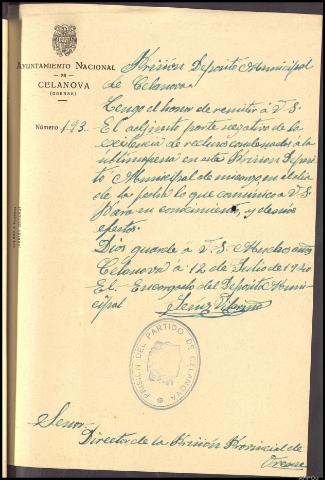 AYUNTAMIENTO NACIONAL
DE
CELANOVA
(ORENSE)
Número 193.
Prision Deposito Municipal
de Celanova.
Tengo el honor de remitir á V. S.
El adjunto parte negativo de la
existencia de reclusos condenados a la
ultima pena en esta Prision Deposi
to Municipal de mi cargo, en el dia
de la fecha lo que comunico a V. S.
Para su conocimiento, y demás
efectos.
Dios guarde á V. S. Muchos años
Celanova á 12 de Julio de 1940
El Encargado del Deposito Muni-
cipal
PRISION DEL PARTIDO DE CELANOVA
Señor
Director de la Prision Provincial de
Orense